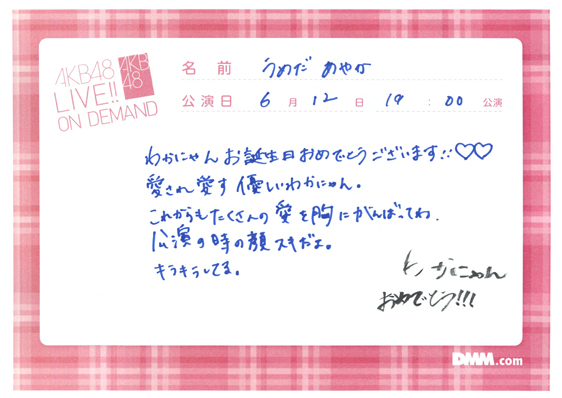 AKB48
LIVE!!
ON DEMAND
AKB
48
名前 うめだ あやか
公演日 6月12日 19:00 公演
わかにゃんお誕生日おめでとうございます!!♡♡
愛され愛す優しいわかにゃん。
これからもたくさんの愛を胸にがんばってね.
公演の時の顔スキだよ。
キラキラしてる。
わかにゃん
おめでとう!!!
DMM.com